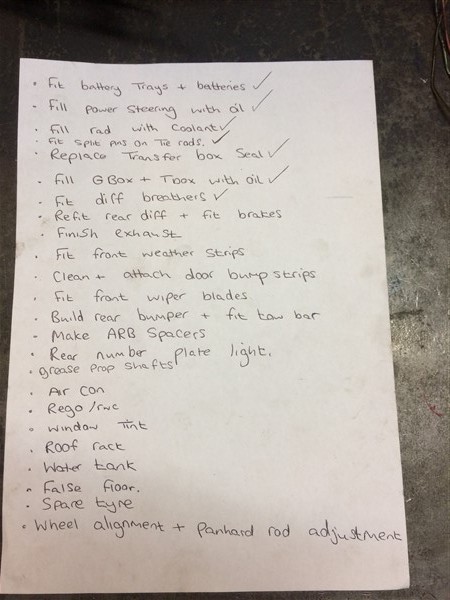 · Fit battery Trays + batteries ✓
- Fill power Steering with oil ✓
· Fill rad with Coolant ✓
· Fit Split pins on Tie rods. ✓
· Replace Transfer box Seal ✓
· Fill GBox + Tbox with oil ✓
· Fit diff breathers ✓
· Refit rear diff + fit brakes
· Finish exhaust
· Fit front weather strips
· Clean + attach door bump strips
· Fit front wiper blades
· Build rear bumper + fit tow bar
- Make ARB Spacers
· Rear number plate light.
· grease prop shafts
· Air Con
· Rego/rwc
· Window Tint
· Roof rack
· Water tank
· False floor.
· Spare tyre
· Wheel alignment + Panhard rod adjustment